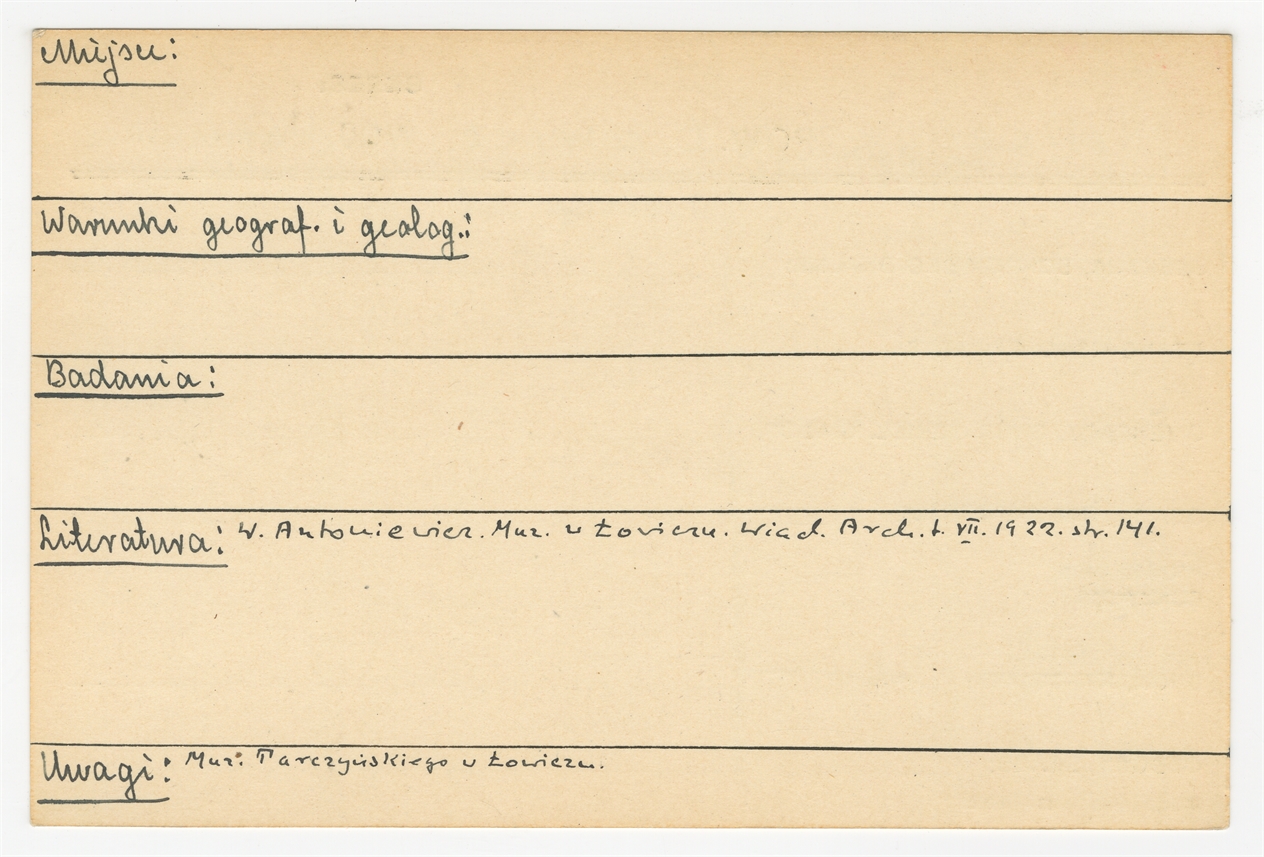 Miejsce:
Warunki geograf. i geolog.:
Badania:
Literatura: W. Antoniewicz. Muz. w Łowiczu. Wiad. Arch. t. VII. 1922. str. 141.
Uwagi: Muz. Tarczyńskiego w Łowiczu.